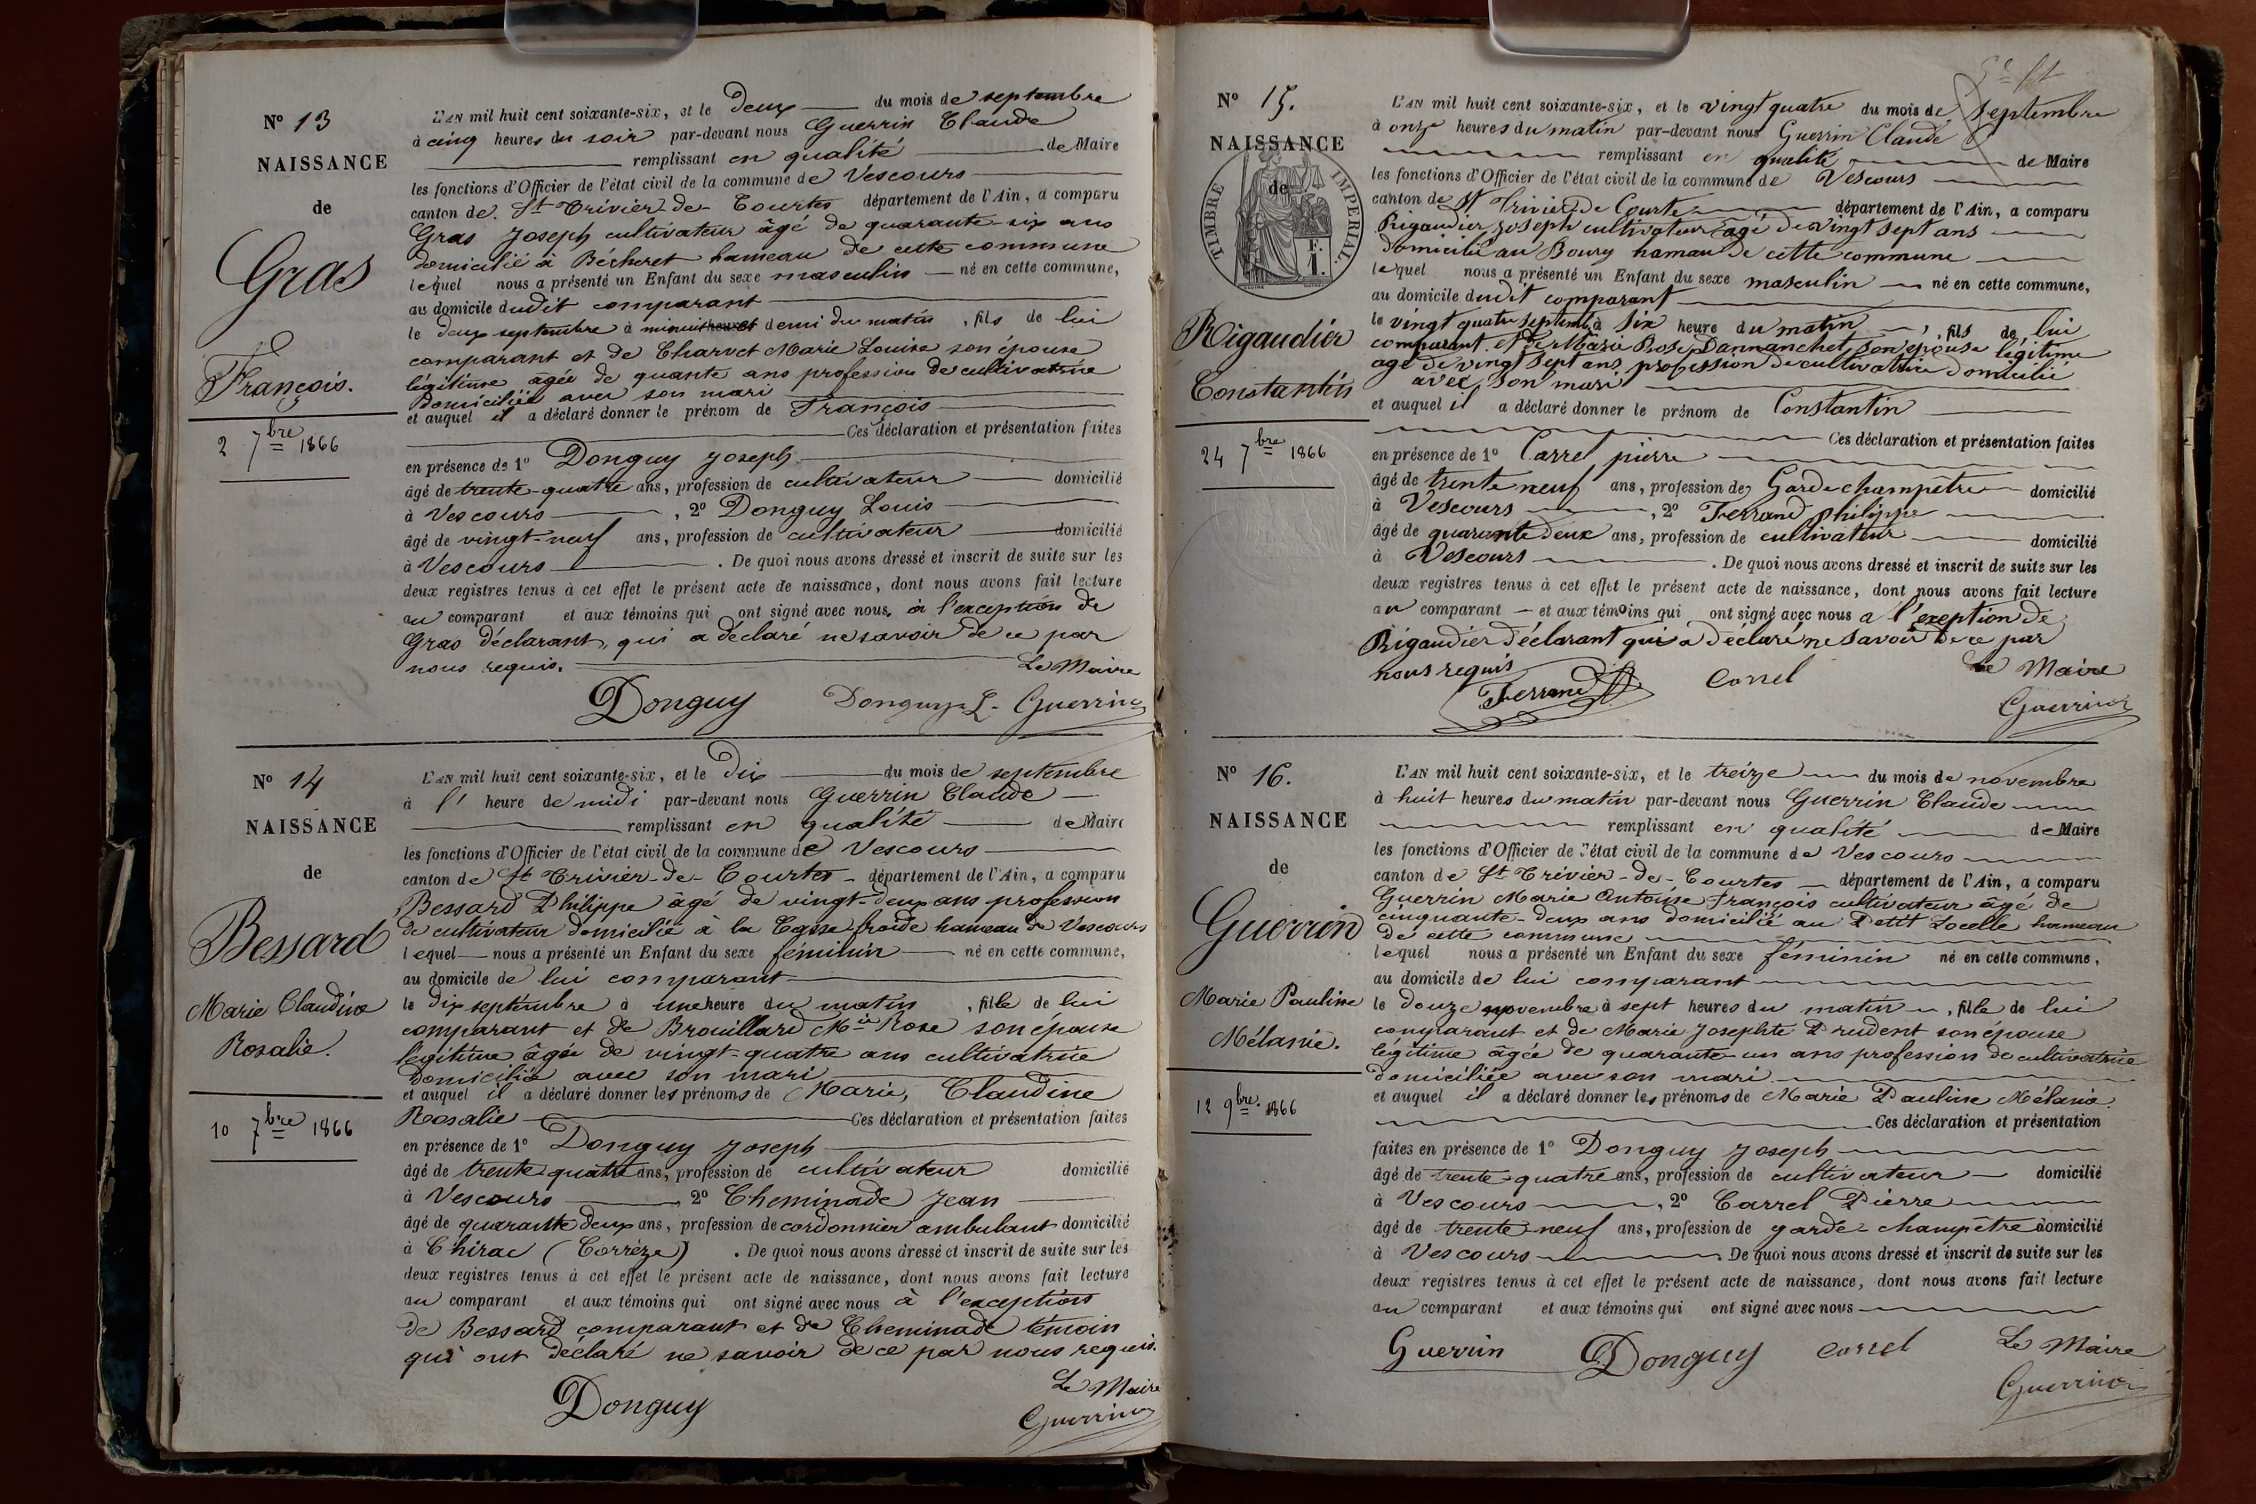 N° 13
NAISSANCE
de
Gras
François.
2 7bre 1866
L'AN mil huit cent soixante-six, et le deux du mois de septembre
à cinq heures du soir par-devant nous Guerrin Claude
remplissant en qualité de Maire
les fonctions d'Officier de l'état civil de la commune de Vescours
canton de St Trivier-de-Courtes département de l'Ain, a comparu
Gras Joseph cultivateur âgé de quarante-six ans
domicilié à Bécheret hameau de cette commune
lequel nous a présenté un Enfant du sexe masculin né en cette commune,
au domicile dudit comparant
le deux septembre à minuit heures et demi du matin, fils de lui
comparant et de Charvet Marie Louise son épouse
légitime âgée de quante ans profession de cultivatrice
domiciliée avec son mari
et auquel il a déclaré donner le prénom de François
Ces déclaration et présentation faites
en présence de 1° Donguy Joseph
âgé de trente-quatre ans, profession de cultivateur domicilié
à Vescours, 2° Donguy Louis
âgé de vingt-neuf ans, profession de cultivateur domicilié
à Vescours. De quoi nous avons dressé et inscrit de suite sur les
deux registres tenus à cet effet le présent acte de naissance, dont nous avons fait lecture
au comparant et aux témoins qui ont signé avec nous à l'exception de
Gras déclarant, qui a déclaré ne savoir de ce par
nous requis.
Le Maire
Donguy Donguy L. Guerrin
N° 14
NAISSANCE
de
Bessard
Marie Claudine
Rosalie.
10 7bre 1866
L'AN mil huit cent soixante-six, et le dix du mois de septembre
à l' heure de midi par-devant nous Guerrin Claude
remplissant en qualité de Maire
les fonctions d'Officier de l'état civil de la commune de Vescours
canton de St Trivier-de-Courtes département de l'Ain, a comparu
Bessard Philippe âgé de vingt-deux ans profession
de cultivateur domicilié à la Casse froide hameau de Vescours
lequel nous a présenté un Enfant du sexe féminin né en cette commune,
au domicile de lui comparant
le dix septembre à une heure du matin, fille de lui
comparant et de Brouillard Mie Rose son épouse
légitime âgée de vingt-quatre ans cultivatrice
domiciliée avec son mari
et auquel il a déclaré donner les prénoms de Marie, Claudine
Rosalie Ces déclaration et présentation faites
en présence de 1° Donguy Joseph
âgé de trente quatre ans, profession de cultivateur domicilié
à Vescours 2° Cheminade Jean
âgé de quarante deux ans, profession de cordonnier ambulant domicilié
à Chirac (Corrèze). De quoi nous avons dressé et inscrit de suite sur les
deux registres tenus à cet effet le présent acte de naissance, dont nous avons fait lecture
au comparant et aux témoins qui ont signé avec nous à l'exception
de Bessard comparant et de Cheminade témoin
qui ont déclaré ne savoir de ce par nous requis.
Le Maire
Donguy Guerrin
N° 15.
NAISSANCE
de
TIMBRE IMPERIAL
Rigaudier
Constantin
24 7bre 1866
L'AN mil huit cent soixante-six, et le vingt quatre du mois de Septembre
à onze heures du matin par-devant nous Guerrin Claude
remplissant en qualité de Maire
les fonctions d'Officier de l'état civil de la commune de Vescours
canton de St Trivier de Courte département de l'Ain, a comparu
Rigaudier joseph cultivateur âgé de vingt sept ans
domicilié au Boury hamau de cette commune
lequel nous a présenté un Enfant du sexe masculin né en cette commune,
au domicile dudit comparant
le vingt quatre septembre à six heure du matin, fils de lui
comparant et de Marie Rose Dannanchet son épouse légitime
agé de vingt sept ans profession de cultivatrice domicilié
avec son mari
et auquel il a déclaré donner le prénom de Constantin
Ces déclaration et présentation faites
en présence de 1° Carrel pierre
âgé de trente neuf ans, profession de Garde champêtre domicilié
à Vescours, 2° Ferrand philippe
âgé de quarante deux ans, profession de cultivateur domicilié
à Vescours. De quoi nous avons dressé et inscrit de suite sur les
deux registres tenus à cet effet le présent acte de naissance, dont nous avons fait lecture
au comparant et aux témoins qui ont signé avec nous a l'exeption de
Rigaudier déclarant qui a déclaré ne savoir de ce par
nous requis
le Maire
Ferrand Carrel Guerrin
N° 16.
NAISSANCE
de
Guerrin
Marie Pauline
Mélanie.
12 9bre 1866
L'AN mil huit cent soixante-six, et le treize du mois de novembre
à huit heures du matin par-devant nous Guerrin Claude
remplissant en qualité de Maire
les fonctions d'Officier de l'état civil de la commune de Vescours
canton de St Trivier-de-Courtes département de l'Ain, a comparu
Guerrin Marie Antoine François cultivateur âgé de
cinquante-deux ans domicilié au Petit Locelle hameau
de cette commune
lequel nous a présenté un Enfant du sexe féminin né en cette commune,
au domicile de lui comparant
le douze novembre à sept heures du matin, fille de lui
comparant et de Marie Josephte Prudent son épouse
légitime âgée de quarante-un ans profession de cultivatrice
domiciliée avec son mari
et auquel il a déclaré donner les prénoms de Marie Pauline Mélanie.
Ces déclaration et présentation
faites en présence de 1° Donguy Joseph
âgé de trente quatre ans, profession de cultivateur domicilié
à Vescours, 2° Carrel Pierre
âgé de trente-neuf ans, profession de garde-champêtre domicilié
à Vescours De quoi nous avons dressé et inscrit de suite sur les
deux registres tenus à cet effet le présent acte de naissance, dont nous avons fait lecture
au comparant et aux témoins qui ont signé avec nous
Guerrin Donguy Carrel Le Maire
Guerrin